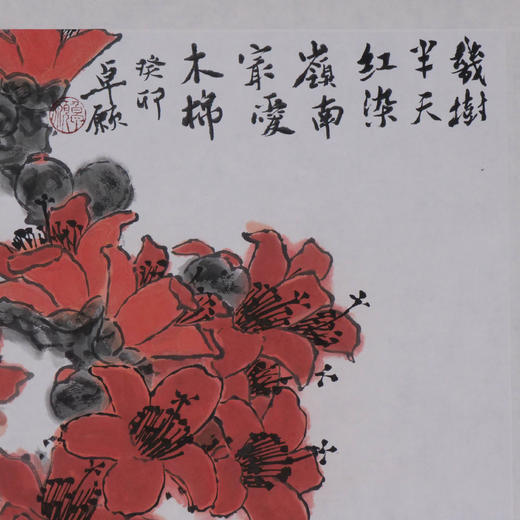 幾樹
半天
紅染
嶺南
最愛
木棉
癸卯
卓願